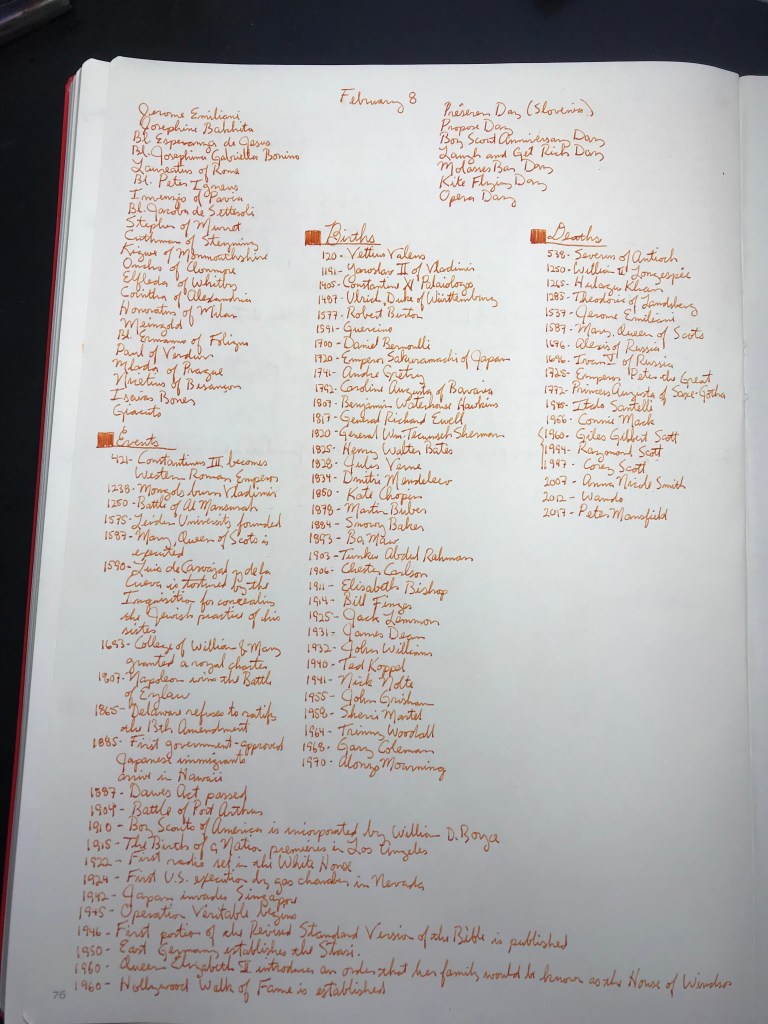 February 8
Jerome Emiliani
Josephine Bakhita
Bl. Esperanza de Jesus
Bl. Josephina Gabriella Bonino
Laurentius of Rome
Bl. Peter Igneus
Invenzio of Pavia
Bl. Jacoba de Settesoli
Stephen of Muret
Cuthman of Steyning
Kigwe of Monmouthshire
Oncho of Clonmore
Elfleda of Whitby
Cointha of Alexandria
Honoratus of Milan
Meingold
Bl. Ermanno of Foligno
Paul of Verdun
Mlada of Prague
Nicetius of Besançon
Isaias Boner
Giacuto
Préseren Day (Slovenia)
Propose Day
Boy Scout Anniversary Day
Laugh and Get Rich Day
Molasses Bar Day
Kite Flying Day
Opera Day
Births
120 - Vettius Valens
1191 - Yaroslav II of Vladimir
1405 - Constantine XI Palaiologos
1487 - Ulrich, Duke of Württemburg
1577 - Robert Burton
1591 - Guercino
1700 - Daniel Bernoulli
1720 - Emperor Sakuramachi of Japan
1741 - Andre Gretry
1792 - Caroline Augusta of Bavaria
1807 - Benjamin Waterhouse Hawkins
1817 - General Richard Ewell
1820 - General Wm Tecumseh Sherman
1825 - Henry Walter Bates
1828 - Jules Verne
1834 - Dmitri Mendeleev
1850 - Kate Chopin
1878 - Martin Buber
1884 - Snowy Baker
1893 - Ba Maw
1903 - Tunku Abdul Rahman
1906 - Chester Carlson
1911 - Elisabeth Bishop
1914 - Bill Finger
1925 - Jack Lemmon
1931 - James Dean
1932 - John Williams
1940 - Ted Koppel
1941 - Nick Nolte
1955 - John Grisham
1958 - Sherri Martel
1964 - Trinny Woodall
1968 - Gary Coleman
1970 - Alonzo Mourning
Deaths
538 - Severus of Antioch
1250 - William II Longespée
1265 - Hulagu Khan
1285 - Theodoric of Landsberg
1537 - Jerome Emiliani
1587 - Mary, Queen of Scots
1676 - Alexis of Russia
1696 - Ivan V of Russia
1725 - Emperor Peter the Great
1772 - Princess Augusta of Saxe-Gotha
1945 - Italo Santelli
1956 - Connie Mack
1960 - Giles Gilbert Scott
1994 - Raymond Scott
1997 - Corey Scott
2007 - Anna Nicole Smith
2012 - Wando
2017 - Peter Mansfield
Events
421 - Constantinus III becomes
Western Roman Emperor
1238 - Mongols burn Vladimir
1250 - Battle of Al Mansurah
1575 - Leiden University founded
1587 - Mary, Queen of Scots is
executed
1590 - Luis de Carvajal y de la
Cueva is tortured by the
Inquisition for concealing
the Jewish practice of his
sister
1693 - College of William & Mary
granted a royal charter
1807 - Napoleon wins the Battle
of Eylau
1865 - Delaware refuses to ratify
the 13th Amendment
1885 - First government-approved
Japanese immigrants
arrive in Hawaii
1887 - Dawes Act passed
1904 - Battle of Port Arthur
1910 - Boy Scouts of America is incorporated by William D. Boyce
1915 - The Birth of a Nation premieres in Los Angeles
1922 - First radio set in the White House
1924 - First U.S. execution by gas chamber in Nevada
1942 - Japan invades Singapore
1945 - Operation Veritable begins
1946 - First portion of the Revised Standard Version of the Bible is published
1950 - East Germany establishes the Stasi.
1960 - Queen Elizabeth II introduces an order that her family would be known as the House of Windsor
1960 - Hollywood Walk of Fame is established
76